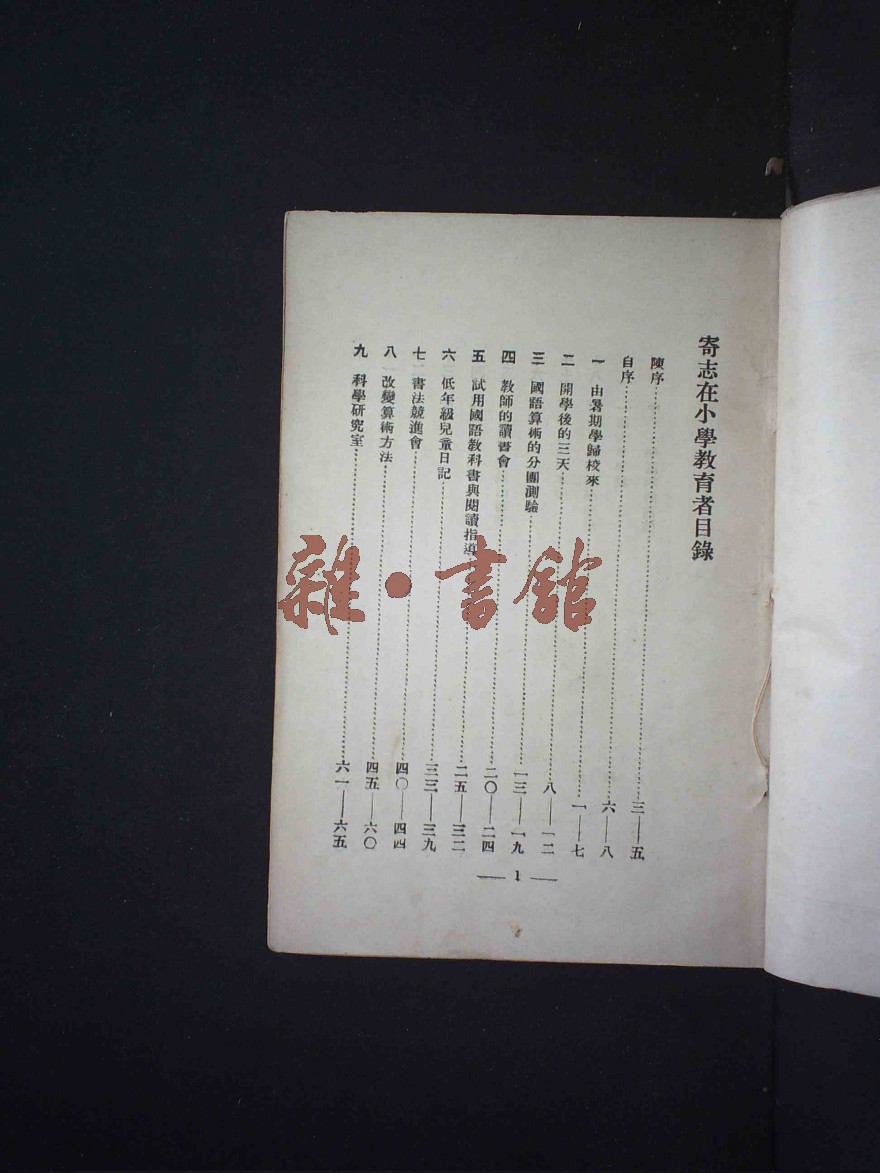 寄志在小學教育者目錄
陳序…………三——五
自序…………六——八
一 由暑期學歸校來…………一——七
二 開學後的三天…………八——一二
三 國語算術的分團測驗…………一三——一九
四 教師的讀書會…………二〇——二四
五 試用國語教科書與閱讀指導…………二五——三二
六 低年級兒童日記…………三三——三九
七 書法競進會…………四〇——四四
八 改變算術方法…………四五——六〇
九 科學研究室…………六一——六五
— 1 —
雜·書館